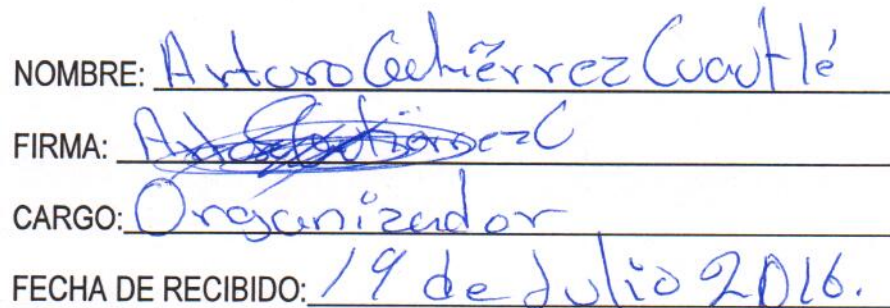 NOMBRE: Arturo Gutiérrez Cuautlé
FIRMA: Arturo Gutiérrez C
CARGO: Organizador
FECHA DE RECIBIDO: 19 de Julio 2016.